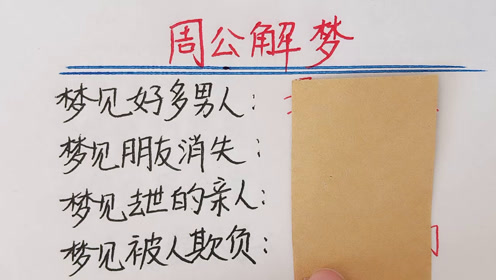 周公解梦
梦见好多男人：
梦见朋友消失：
梦见去世的亲人：
梦见被人欺负：